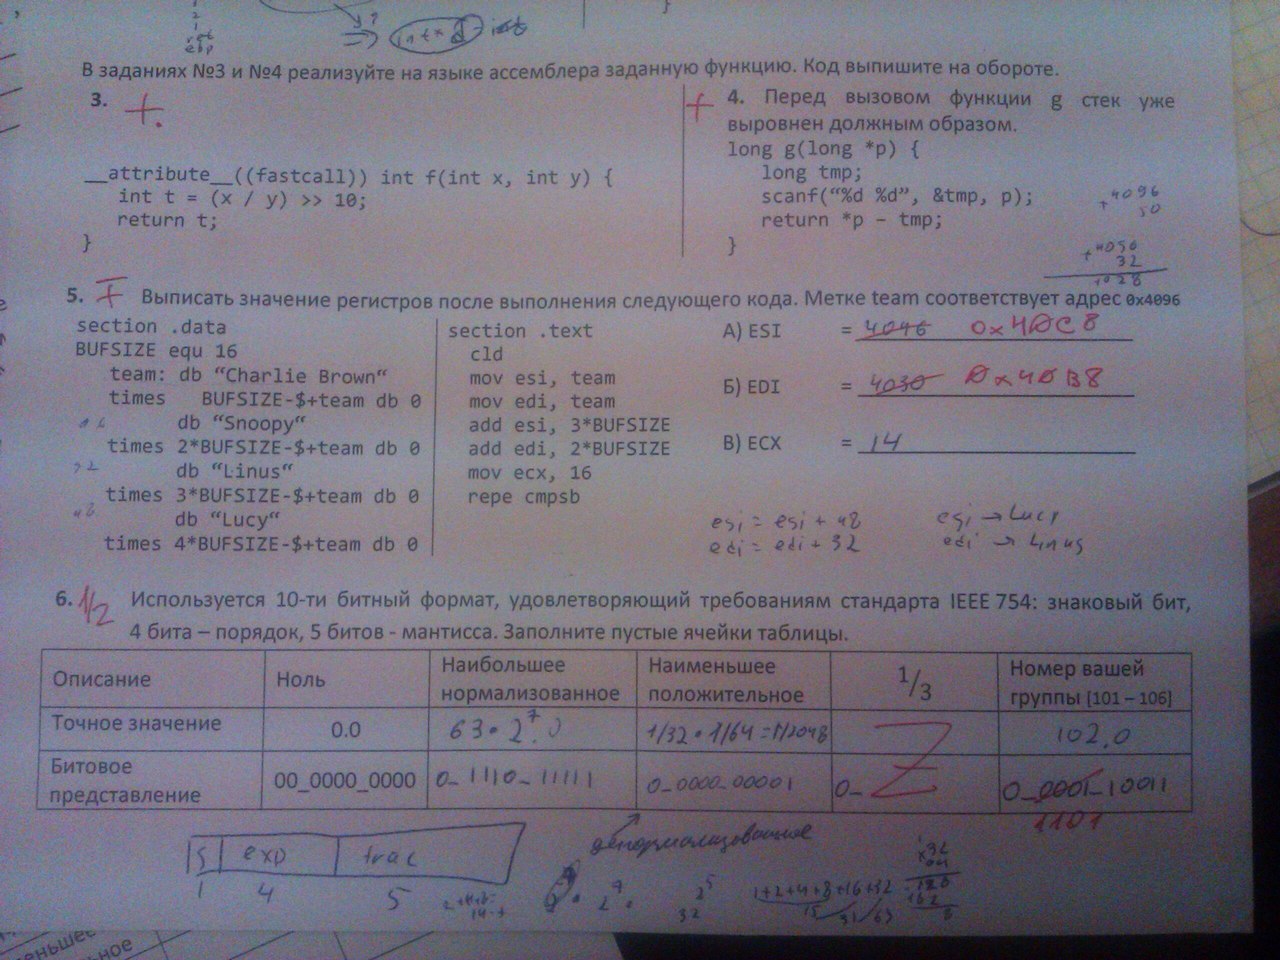 ret
ebp
=> int * 2
В заданиях №3 и №4 реализуйте на языке ассемблера заданную функцию. Код выпишите на обороте.
3. +.
__attribute__((fastcall)) int f(int x, int y) {
int t = (x / y) >> 10;
return t;
}
+ 4. Перед вызовом функции g стек уже
выровнен должным образом.
long g(long *p) {
long tmp;
scanf(“%d %d”, &tmp, p);
return *p – tmp;
}
+4096
50
+4050
32
5. Выписать значение регистров после выполнения следующего кода. Метке team соответствует адрес 0x4096
section .data
BUFSIZE equ 16
team: db “Charlie Brown“
times BUFSIZE-$+team db 0
db “Snoopy“
times 2*BUFSIZE-$+team db 0
32
db “Linus“
times 3*BUFSIZE-$+team db 0
48
db “Lucy“
times 4*BUFSIZE-$+team db 0
section .text
cld
mov esi, team
mov edi, team
add esi, 3*BUFSIZE
add edi, 2*BUFSIZE
mov ecx, 16
repe cmpsb
А) ESI = 4046 0x40C8
Б) EDI = 4030 0x40B8
В) ECX = 14
esi = esi + 48
edi = edi + 32
esi → Lucy
edi → Linus
6. 1/2 Используется 10-ти битный формат, удовлетворяющий требованиям стандарта IEEE 754: знаковый бит,
4 бита – порядок, 5 битов - мантисса. Заполните пустые ячейки таблицы.
Описание
Ноль
Наибольшее
нормализованное
Наименьшее
положительное
1/3
Номер вашей
группы [101 – 106]
Точное значение
0.0
63 • 2
1/32 • 1/64 = 1/2048
102.0
Битовое
представление
00_0000_0000
0_1110_11111
0_0000_00001
0_
0_0001_10011
1101
денормализованное
s exp frac
1 4 5
1+2+4+8+16+32
15 31 63